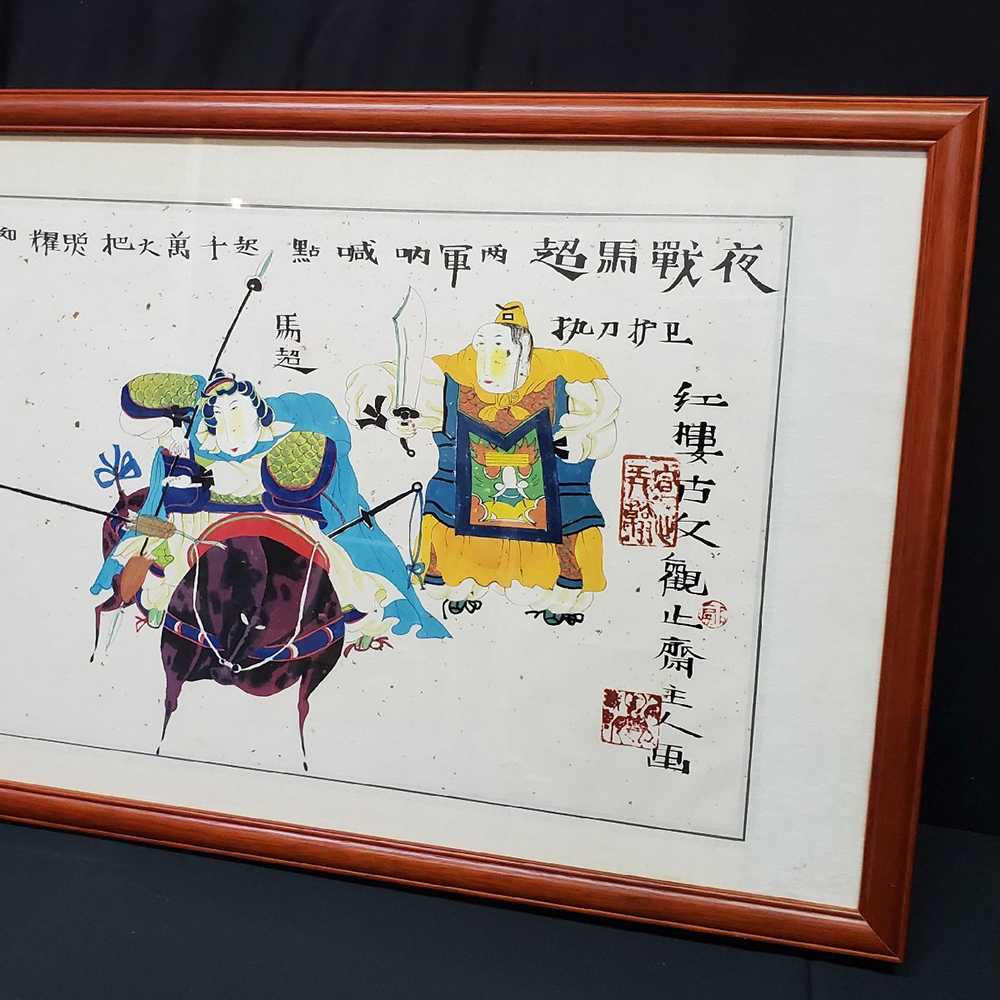 夜戰馬超 两軍呐喊 點起十萬火把照耀如
卫护刀执
馬超
红樓古文觀止齋主人画